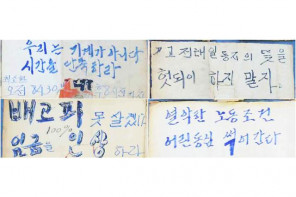 우리는 기계가 아니다
시간을 단축하라
고 전태일 동지의 뜻을
헛되이 하지 말자.
배고파 못 살겠다
100%
임금을 인상 하라
열악한 노동조건
어린동심 썩어간다